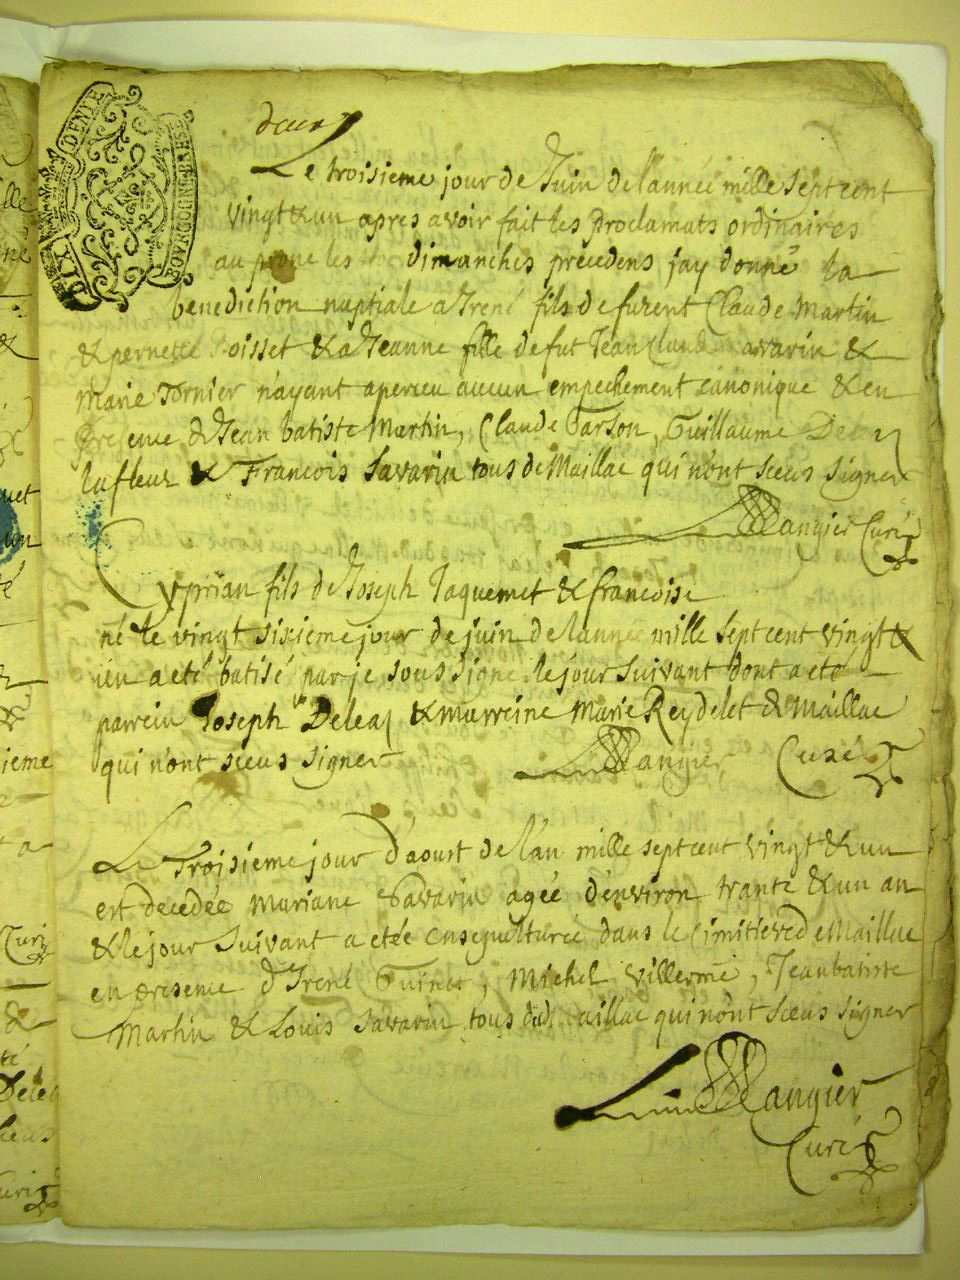 deux
Le troisieme jour de Juin de l'année mille sept cent
vingt & un apres avoir fait les proclamats ordinaires
au prone les dimanches precedens jay donné la
benediction nuptiale a Irené fils de furent Claude Martin
& pernette Poisset & a Jeanne fille de fut Jean Claude Savarin &
Marie Tornier n'ayant aperceu aucun empechement canonique & en
presence de Jean batiste Martin, Claude Tarson, Guillaume
lafleur & Francois Savarin tous de Maillac qui n'ont sceus signer
Mangier Curé
Cyprian fils de Joseph Jaquemet & francoise
né le vingt sixieme jour de juin de l'année mille sept cent vingt &
un a eté batisé par je sous signé le jour suivant dont a eté
parrein Joseph Deleaz & marreine Marie Reydelet de Maillac
qui n'ont sceus signer Mangier Curé
Le Troisieme jour d'aoust de l'an mille sept cent vingt & un
est decedée Mariane Savarin agée d'environ trante & un an
& le jour suivant a etée ensepulturée dans le Cimitiere de Maillac
en presence d'Irené Guinet, Michel Villerme, Jean batiste
Martin & Louis Savarin tous dud. Maillac qui n'ont sceus signer
Mangier
Curé